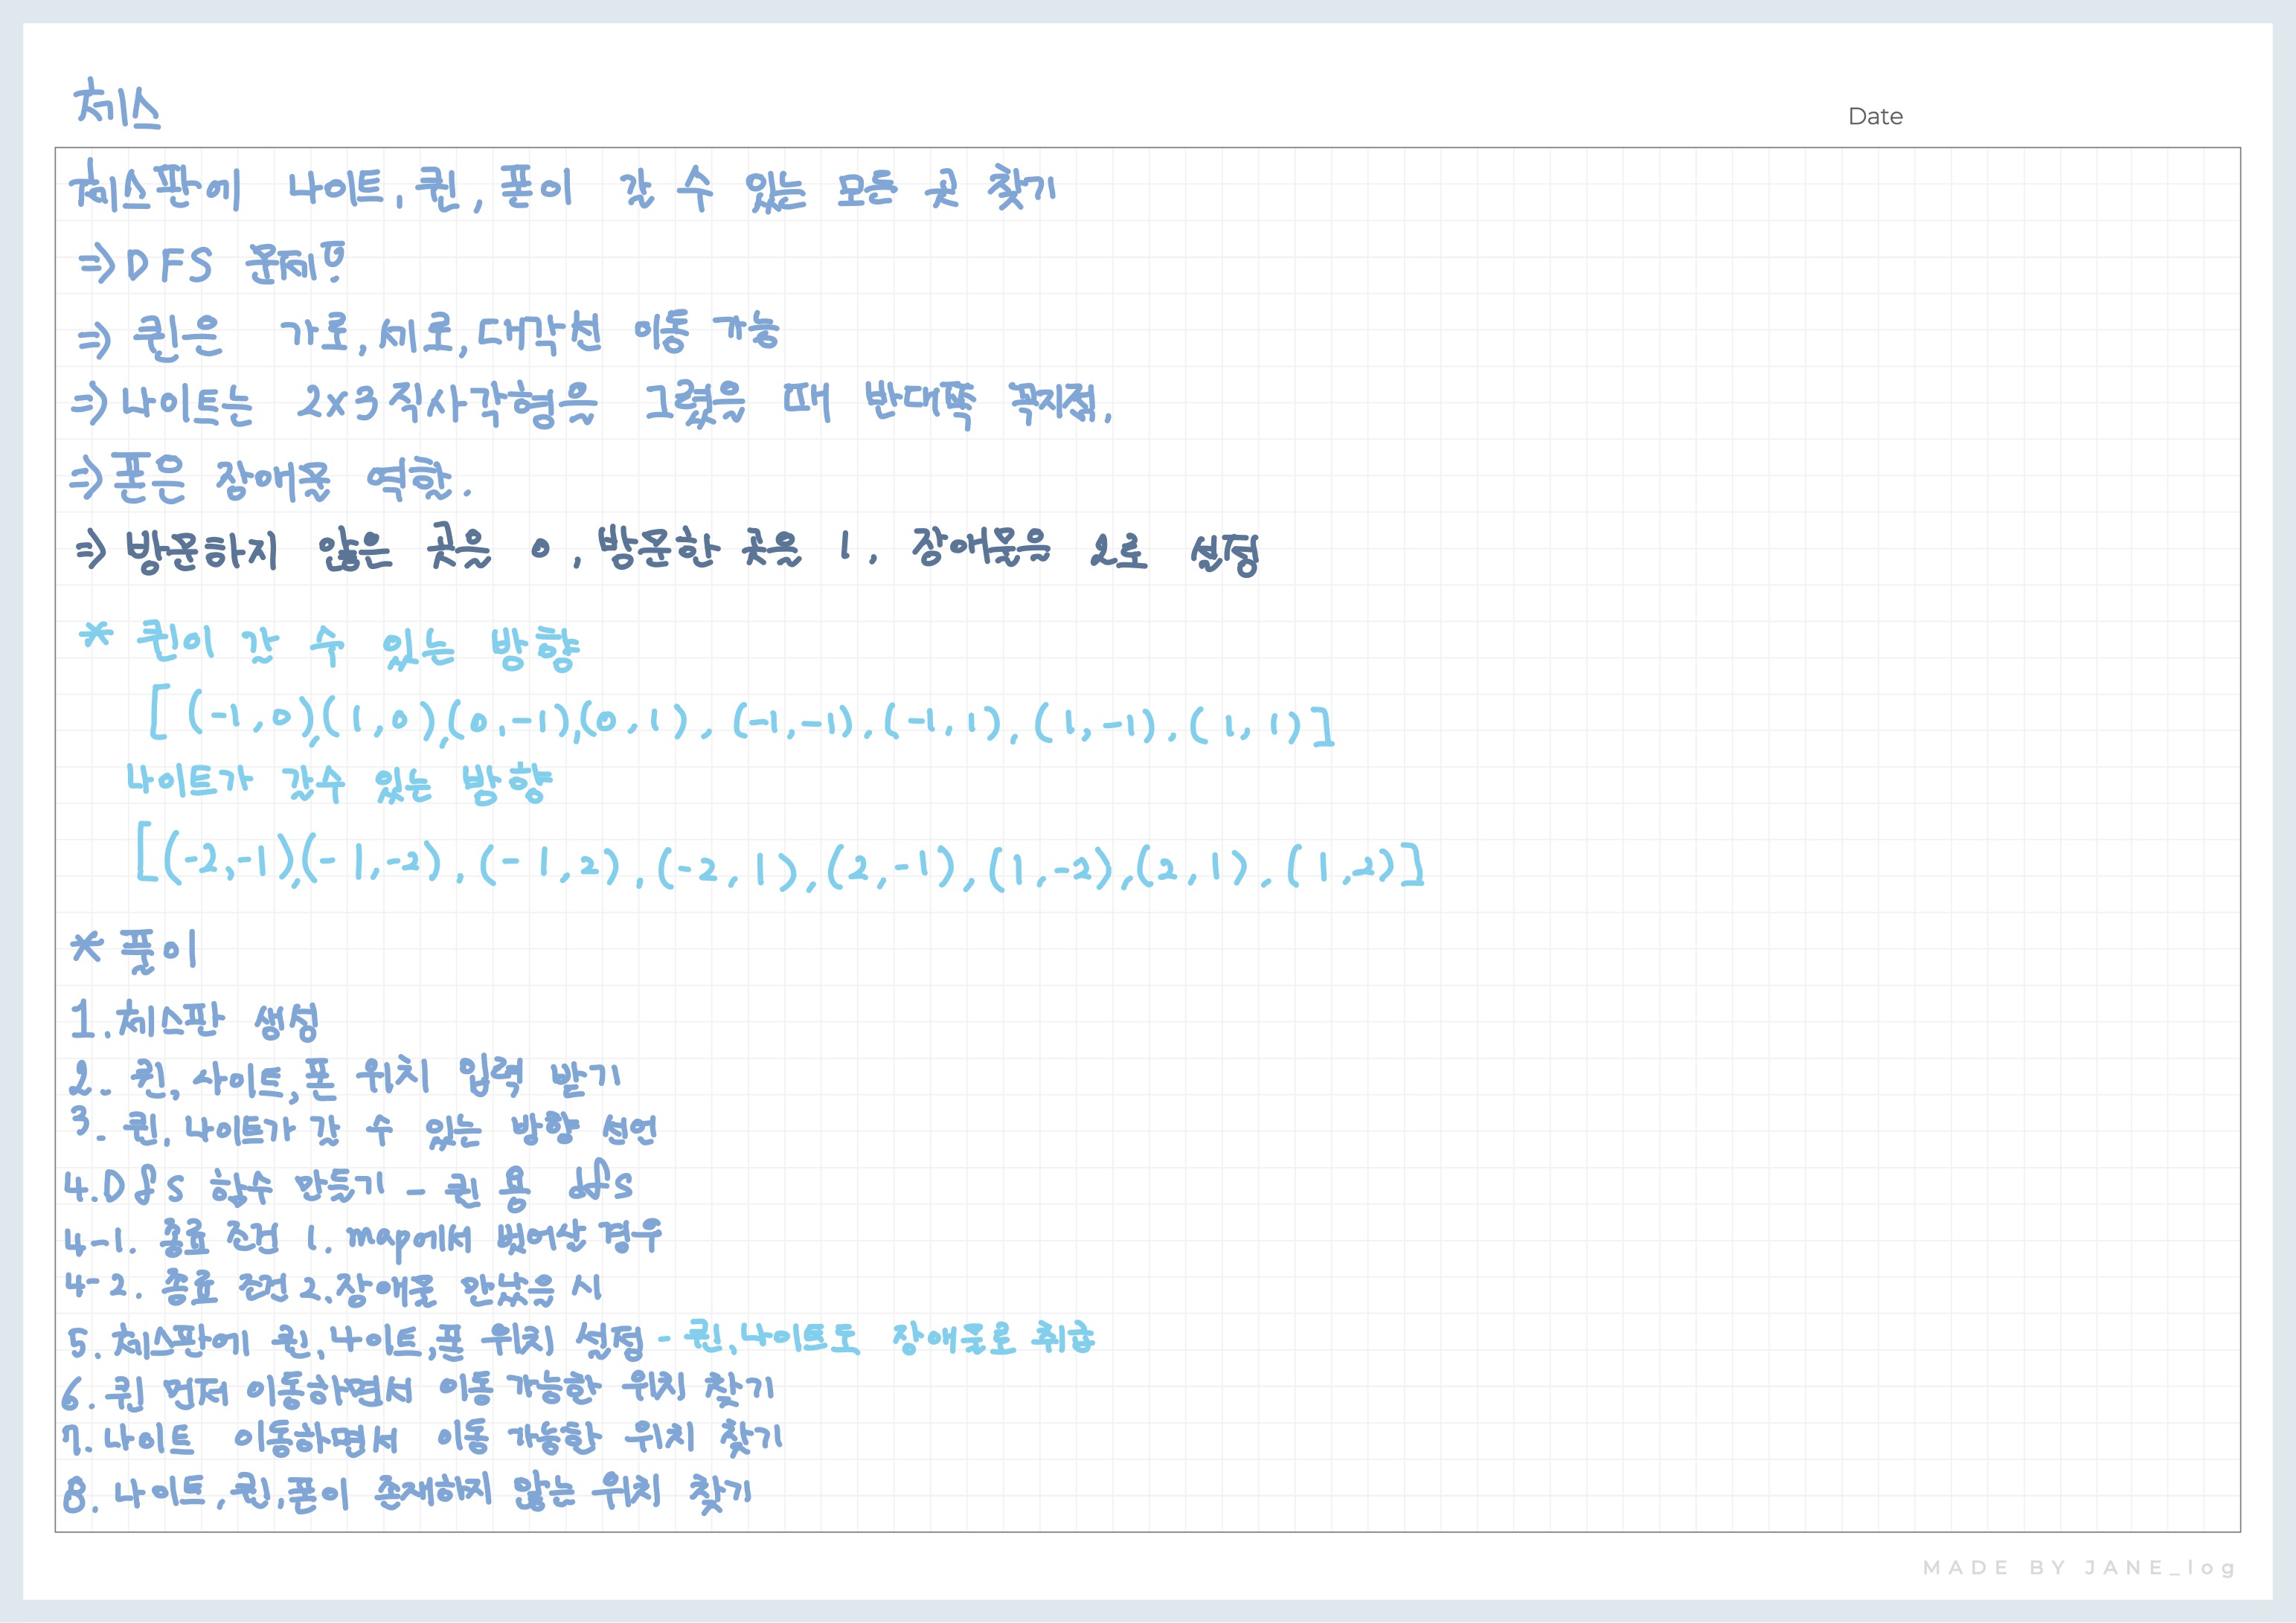 체스
Date
체스판에 나이트, 퀸, 폰이 갈 수 있는 모든 곳 찾기
⇒ DFS 문제!?
⇒ 퀸은 가로, 세로, 대각선 이동 가능
⇒ 나이트는 2x3 직사각형을 그렸을 때 반대쪽 꼭지점.
⇒ 폰은 장애물 역할.
⇒ 방문하지 않은 곳은 0, 방문한 곳은 1, 장애물은 2로 설정
* 퀸이 갈 수 있는 방향
[(-1,0),(1,0),(0,-1),(0,1),(-1,-1),(-1,1),(1,-1),(1,1)]
나이트가 갈수 있는 방향
[(-2,-1),(-1,-2),(-1,2),(-2,1),(2,-1),(1,-2),(2,1),(1,2)]
* 풀이
1. 체스판 생성
2. 퀸, 나이트, 폰 위치 입력 받기
3. 퀸, 나이트가 갈 수 있는 방향 선언
4. Dfs 함수 만들기 - 퀸 용 dfs
4-1. 종료 조건 1. map에서 벗어난 경우
4-2. 종료 조건 2. 장애물 만났을 시
5. 체스판에 퀸, 나이트, 폰 위치 설정 - 퀸, 나이트도 장애물로 취급
6. 퀸 먼저 이동하면서 이동 가능한 위치 찾기
7. 나이트 이동하면서 이동 가능한 위치 찾기
8. 나이트, 퀸, 폰이 존재하지 않는 위치 찾기
MADE BY JANE_log